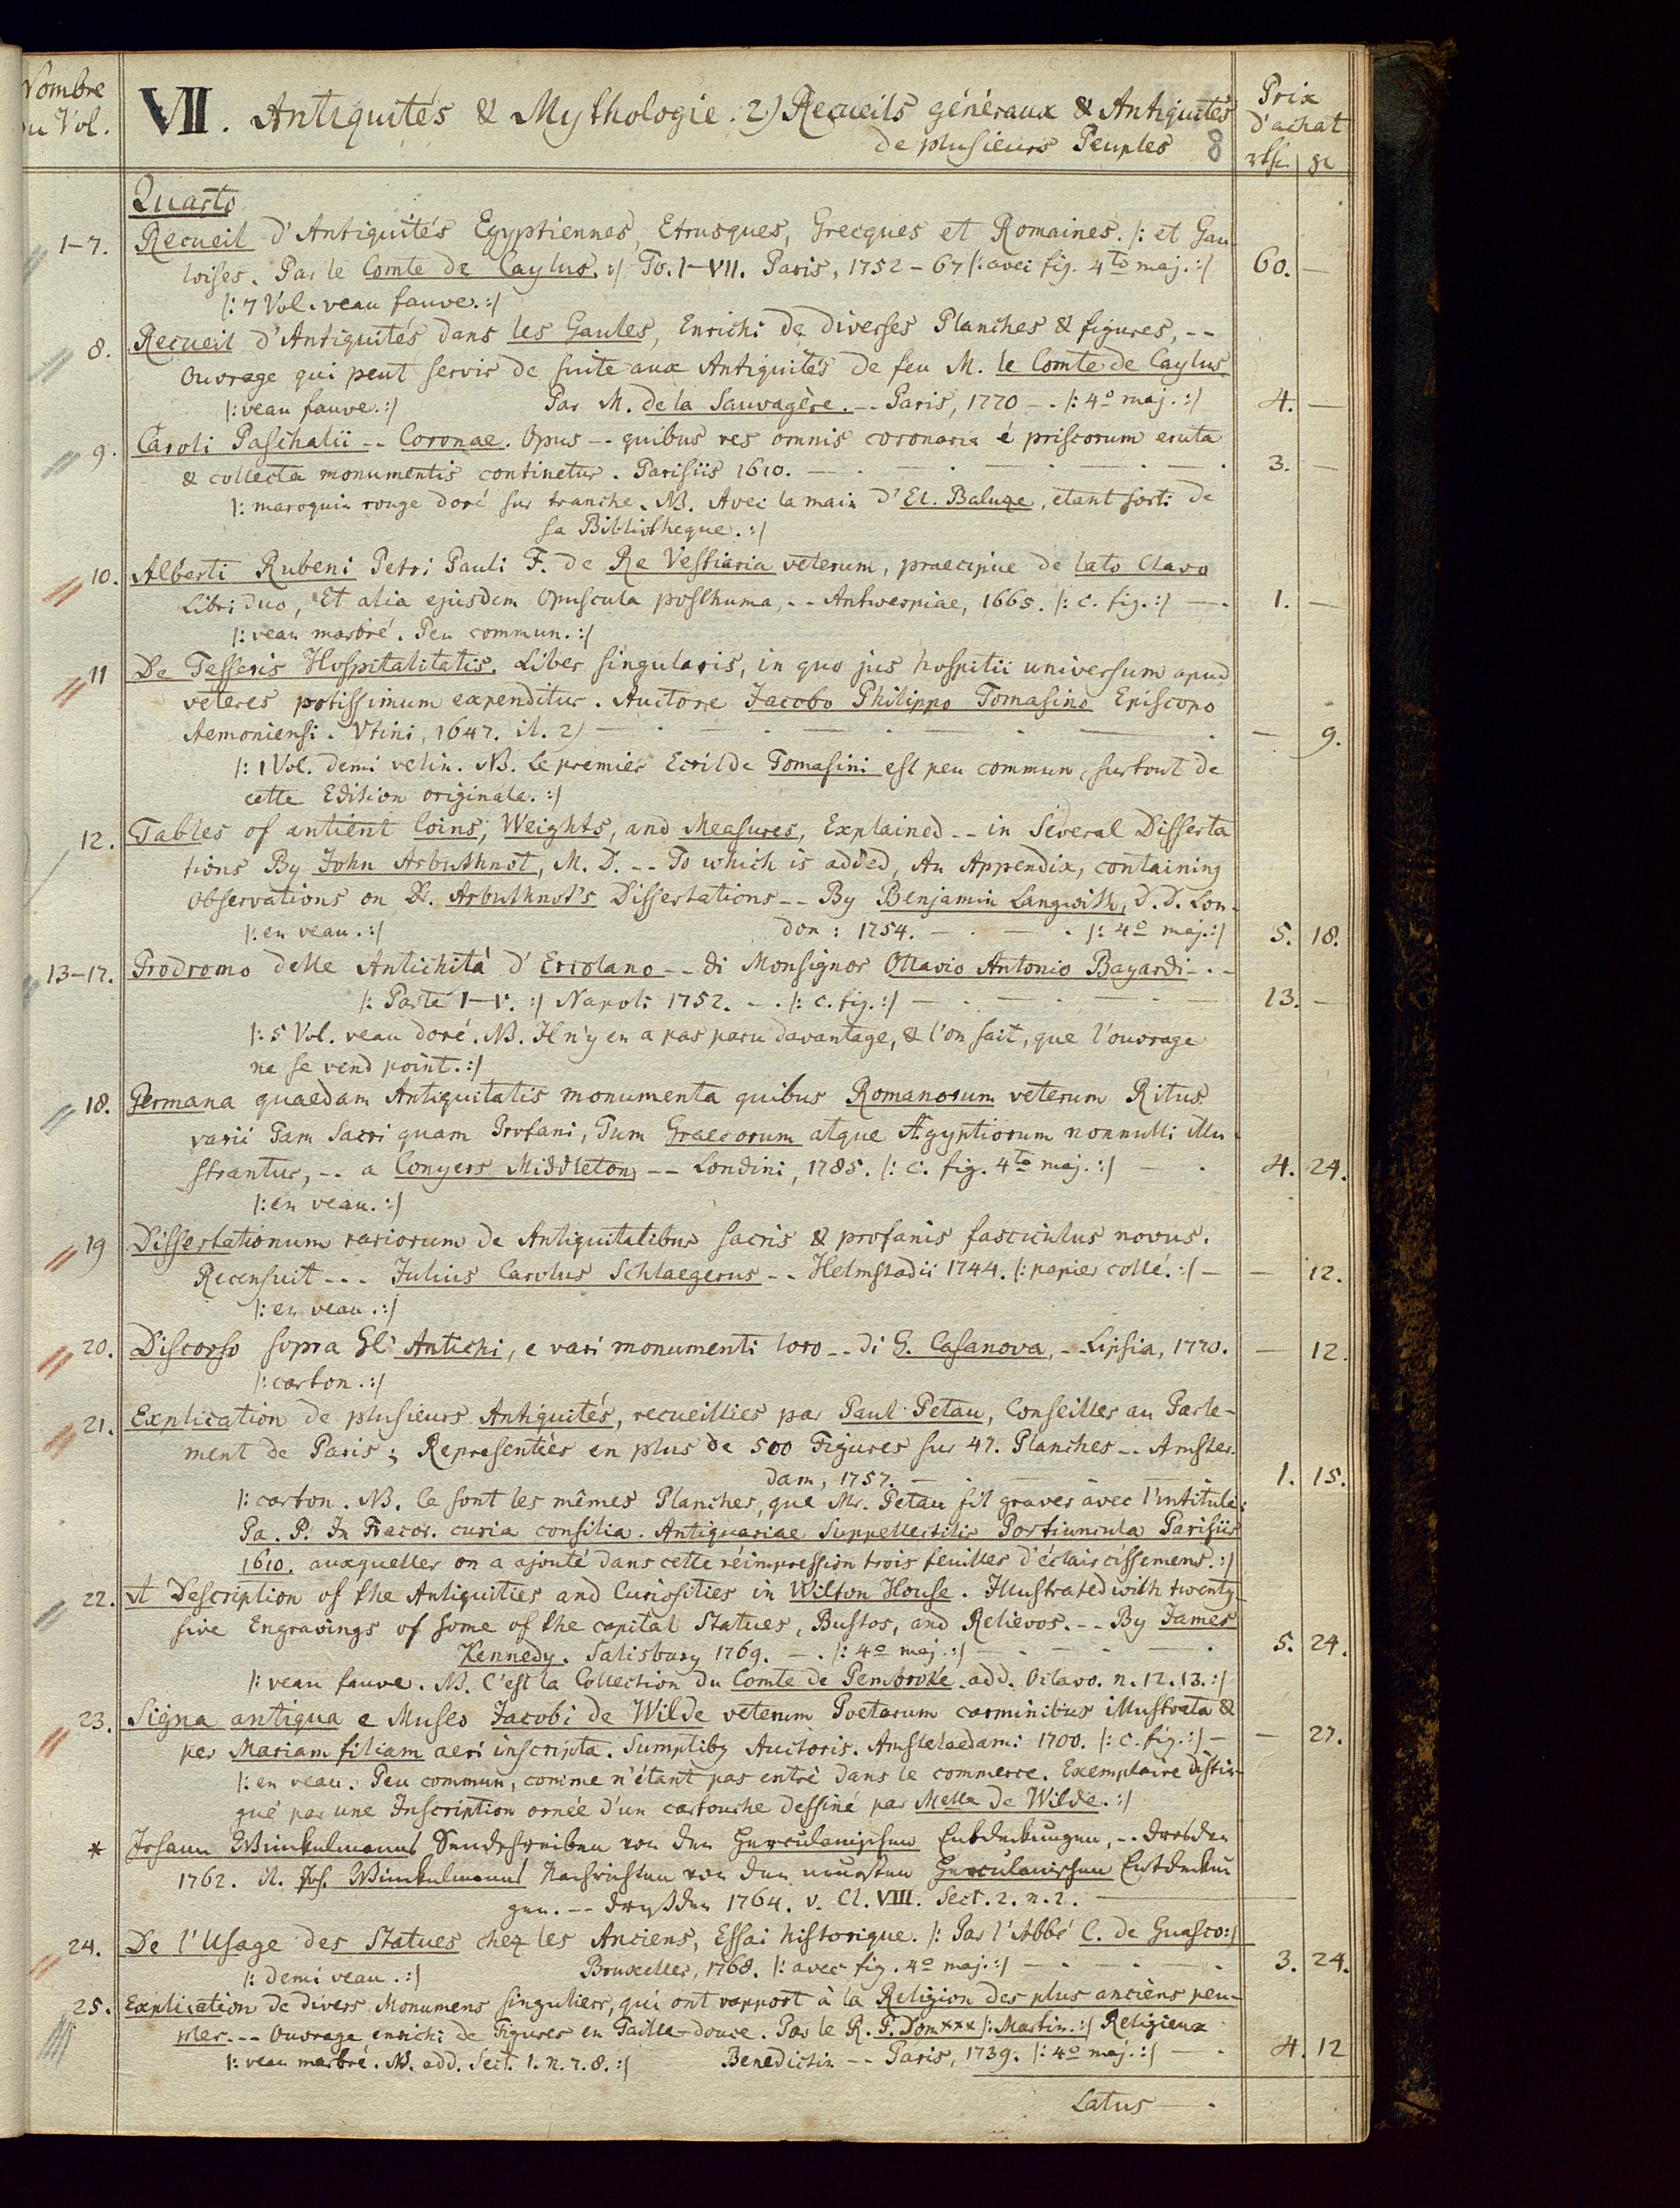 Nombre
du Vol.
VII. Antiquités & Mythologie. 2) Recueils généraux & Antiquités
de plusieurs Peuples 8
Prix
d'achat
Quarto
1-7. Recueil d'Antiquités Egyptiennes, Etrusques, Grecques et Romaines. /: et Gau-
loises. Par le Comte de Caylus. :/ To. I-VII. Paris, 1752-67 /: avec fig. 4to maj. :/ 60. —
/: 7 Vol. veau fauve. :/
8. Recueil d'Antiquités dans les Gaules, Enrichi de diverses Planches & figures, --
Ouvrage qui peut servir de suite aux Antiquités de feu M. le Comte de Caylus
/: veau fauve. :/ Par M. de la Sauvagère. -- Paris, 1770 -. /: 4o maj. :/ 4. —
9. Caroli Paschalii -- Coronae. Opus -- quibus res omnis coronaria é priscorum eruta
& collecta monumentis continetur. Parisiis 1610. — . — . — . — 3. —
/: maroquin rouge doré sur tranche. NB. Avec la main d'Et. Baluze, etant sorti de
sa Bibliotheque. :/
10. Alberti Rubeni Petri Pauli F. de Re Vestiaria veterum, praecipue de lato Clavo
Libri duo, Et alia ejusdem Opuscula posthuma, -- Antwerpiae, 1665. /: c. fig. :/ — . 1. —
/: veau marbré. Peu commun. :/
11 De Tesseris Hospitalitatis, Liber singularis, in quo jus hospitii universum apud
veteres potissimum expenditur. Auctore Jacobo Philippo Tomasino Episcopo
Aemoniensi. Vtini, 1647. it. 2) — . — . — . — — 9.
/: 1 Vol. demi velin. NB. Le premier Ecrit de Tomasini est peu commun, surtout de
cette Edition originale. :/
12. Tables of antient Coins, Weights, and Measures, Explained -- in Several Disserta
tions By John Arbuthnot, M. D. -- To which is added, An Appendix, containing
Observations on Dr. Arbuthnot's Dissertations -- By Benjamin Langwith, D. D. Lon-
/: en veau. :/ don: 1754. — . — . /: 4o maj. :/ 5. 18.
13-17. Prodromo delle Antichitá d'Ercolano -- di Monsignor Ottavio Antonio Bayardi -.-
/: Parte I-V. :/ Napoli 1752. -. /: c. fig. :/ — . — . — 13. —
/: 5 Vol. veau doré. NB. Il n'y en a pas paru davantage, & l'on sait, que l'ouvrage
ne se vend point. :/
18. Germana quaedam Antiquitatis monumenta quibus Romanorum veterum Ritus
varii Tam Sacri quam Profani, Tum Graecorum atque Ægyptiorum nonnulli illu-
strantur, -- a Conyers Middleton, -- Londini, 1785. /: c. fig. 4to maj. :/ — . 4. 24.
/: en veau. :/
19 Dissertationum rariorum de Antiquitatibus sacris & profanis fasciculus novus.
Recensuit --- Julius Carolus Schlaegerus -- Helmstadii 1744. /: papier collé. :/ — — 12.
/: en veau. :/
20. Discorso sopra Gl' Antichi, e vari monumenti loro -- di G. Casanova, -- Lipsia, 1770. — 12.
/: carton. :/
21. Explication de plusieurs Antiquités, recueillies par Paul Petau, Conseiller au Parle-
ment de Paris; Representées en plus de 500 Figures sur 47. Planches -- Amster-
dam, 1757. — 1. 15.
/: carton. NB. Ce sont les mêmes Planches, que Mr. Petau fit graver avec l'intitulé:
Pa. P. In Francor. curia consilia. Antiquariae Suppellectilis Portiuncula Parisiis
1610. auxquelles on a ajouté dans cette réimpression trois feuilles d'éclaircissemens. :/
22. A Description of the Antiquities and Curiosities in Wilton House. Illustrated with twenty-
five Engravings of some of the capital Statues, Bustos, and Relievos. -- By James
Kennedy. Salisbury 1769. -. /: 4o maj. :/ — . — . — 5. 24.
/: veau fauve. NB. C'est la Collection du Comte de Pembroke. add. Octavo. n. 12. 13. :/
23. Signa antiqua e Museo Jacobi de Wilde veterum Poetarum carminibus illustrata &
per Mariam filiam aeri inscripta. Sumptibg Auctoris. Amstelaedami 1700. /: c. fig. :/ — — 27.
/: en veau. Peu commun, comme n'étant pas entré dans le commerce. Exemplaire distin-
gué par une Inscription ornée d'un cartouche dessiné par Melle de Wilde. :/
* Johann Winkelmanns Sendschreiben von den Herculanischen Entdeckungen, -- Dresden
1762. it. Joh. Winkelmanns Nachrichten von den neuesten Herculanischen Entdeckun
gen. -- Dreßden 1764. v. Cl. VIII. Sect. 2. n. 2. —
24. De l'Usage des Statues chez les Anciens, Essai historique. /: Par l'Abbé C. de Guasco :/
/: demi veau. :/ Bruxelles, 1768. /: avec fig. 4o maj. :/ — . — . — 3. 24.
25. Explication de divers Monumens singuliers, qui ont rapport à la Religion des plus anciens peu-
ples. -- Ouvrage enrichi de Figures en Taille-douce. Par le R. P. Dom xxx /: Martin. :/ Religieux
/: veau marbré. NB. add. Sect. 1. n. 7. 8. :/ Benedictin -- Paris, 1739. /: 4o maj. :/ — . 4. 12
Latus — .